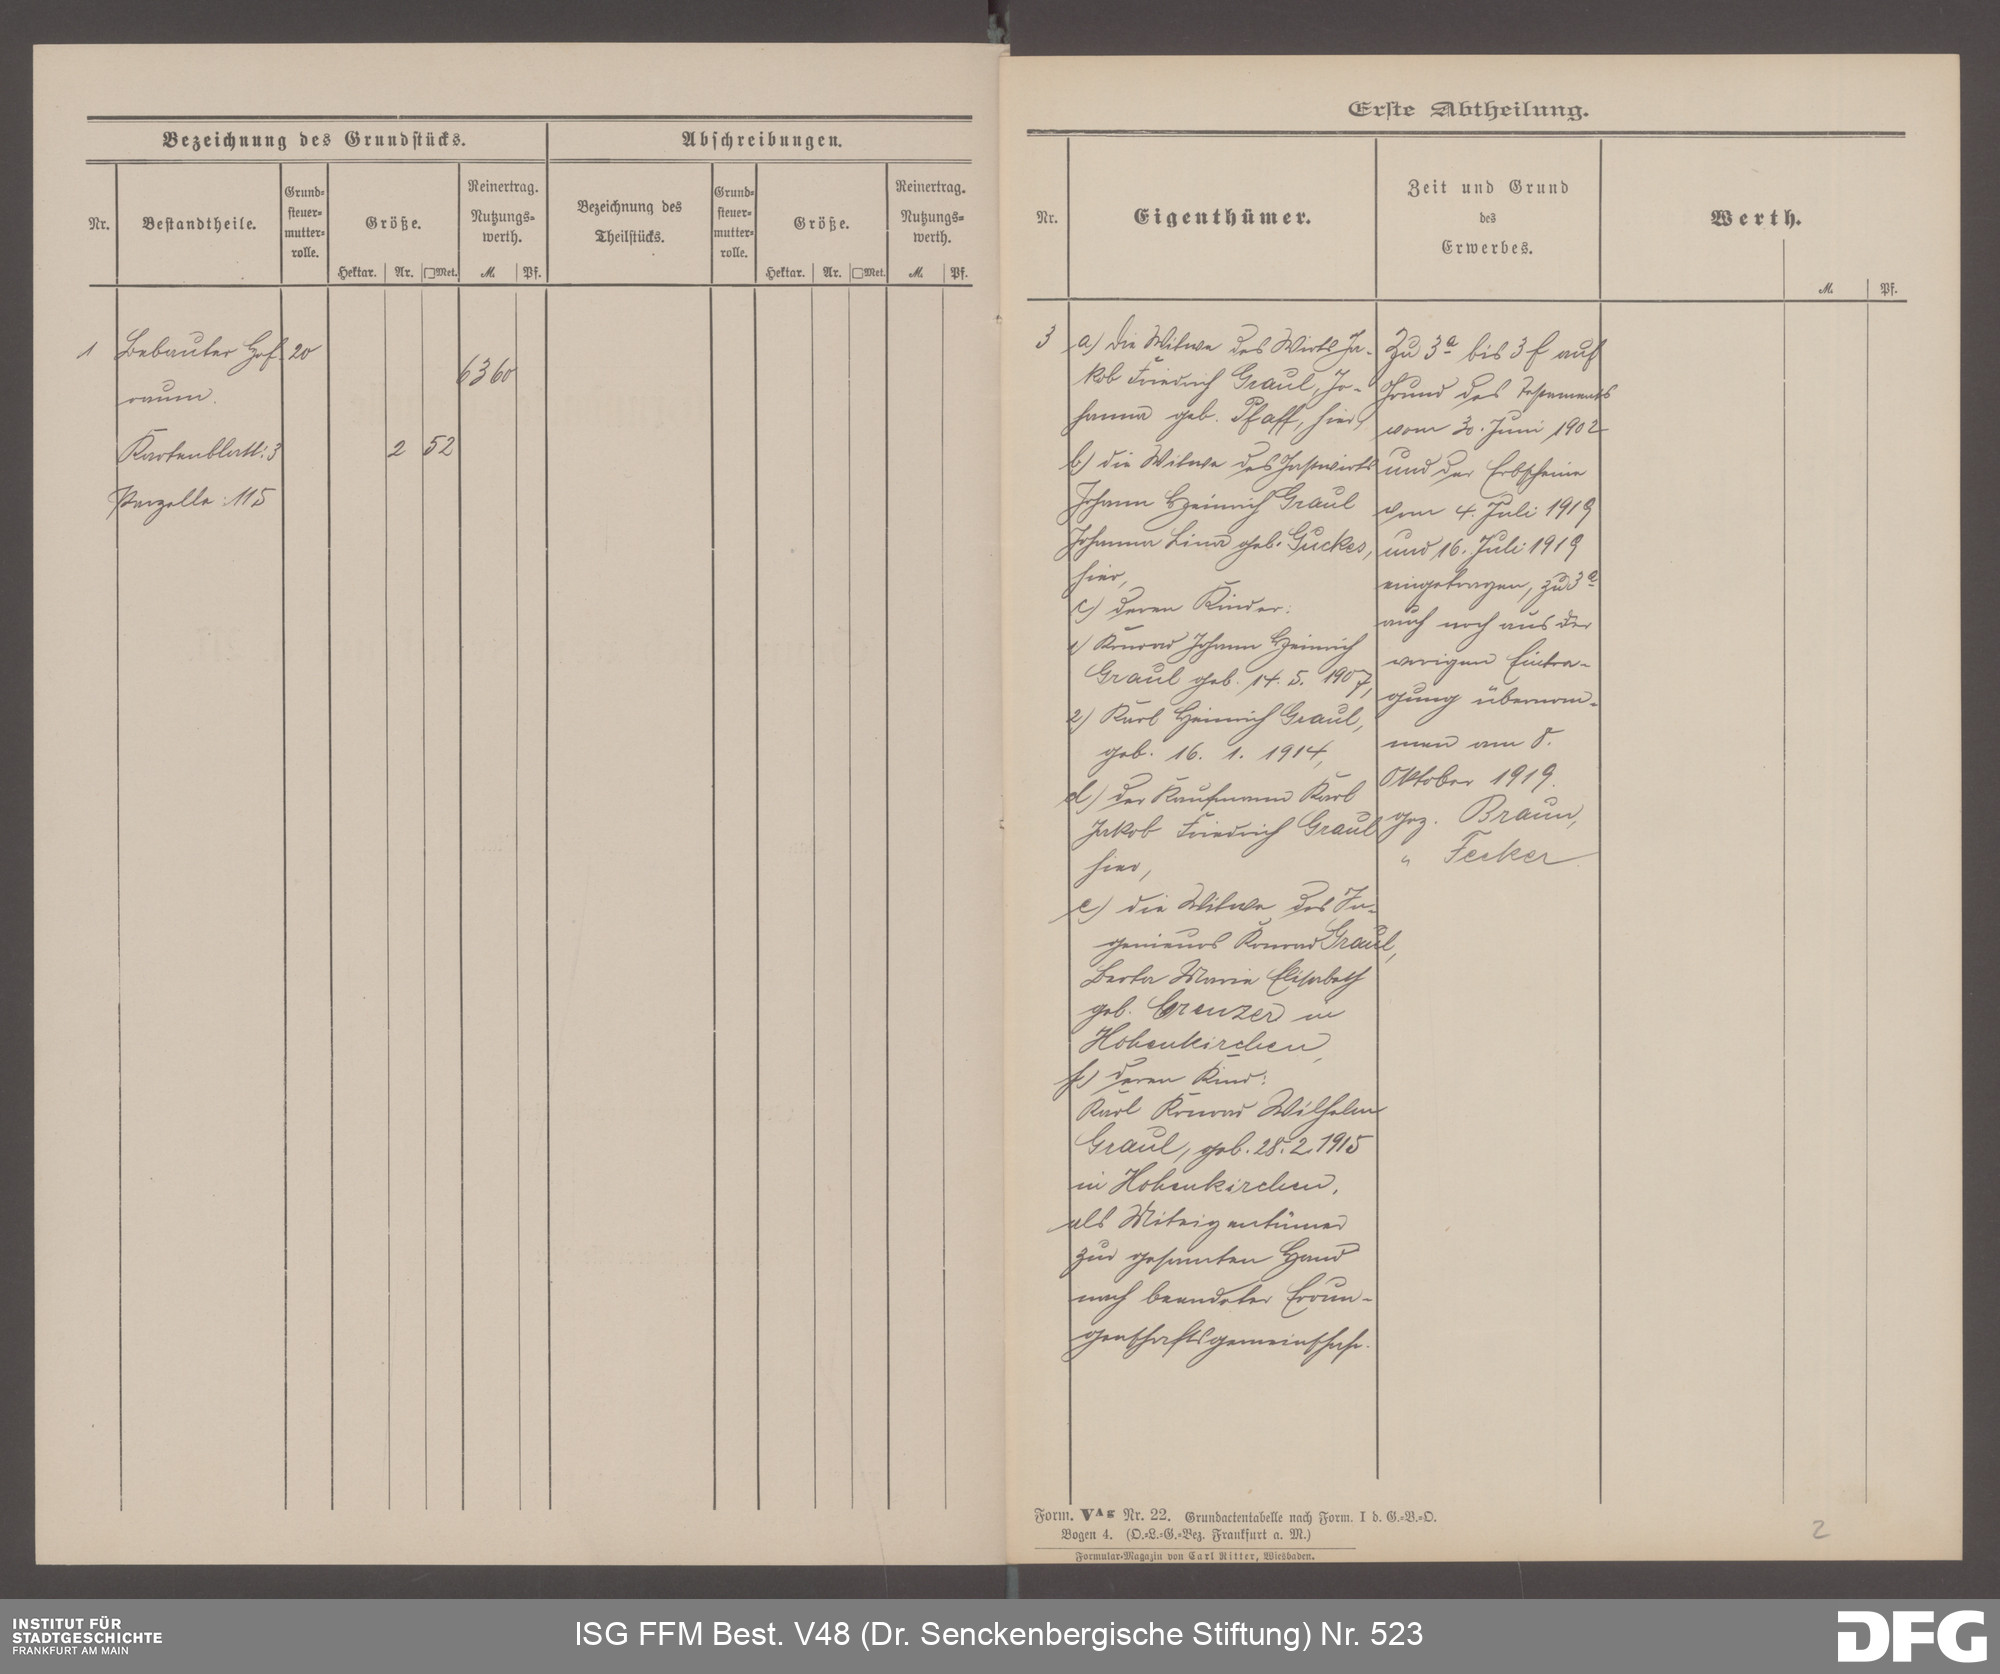 Bezeichnung des Grundstücks.
Abschreibungen.
Nr.
Bestandtheile.
Grund-
steuer-
mutter-
rolle.
Größe.
Hektar. Ar. □Met.
Reinertrag.
Nutzungs-
werth.
M. Pf.
Bezeichnung des
Theilstücks.
Grund-
steuer-
mutter-
rolle.
Größe.
Hektar. Ar. □Met.
Reinertrag.
Nutzungs-
werth.
M. Pf.
1 Bebauter Hof- 20
6360
raum.
Kartenblatt: 3 2 52
Parzelle: 115
Erste Abtheilung.
Nr.
Eigenthümer.
Zeit und Grund
des
Erwerbes.
Werth.
M. Pf.
3 a) die Witwe des Wirts Ja-
kob Friedrich Graul, Jo-
hanna geb. Pfaff, hier,
b) die Witwe des Gastwirts
Johann Heinrich Graul
Johanna Lina geb. Guckes,
hier,
c) deren Kinder:
1) Konrad Johann Heinrich
Graul geb. 14. 5. 1907,
2) Karl Heinrich Graul,
geb. 16. 1. 1914,
d) der Kaufmann Karl
Jakob Friedrich Graul
hier,
e) die Witwe des In-
genieurs Konrad Graul,
Berta Maria Elisabeth
geb. Creuzer in
Hohenkirchen,
f) deren Kind:
Karl Konrad Wilhelm
Graul, geb. 28. 2. 1915
in Hohenkirchen,
als Miteigentümer
zur gesamten Hand
nach beendeter Errun-
genschaftsgemeinschaft.
Zu 3a bis 3f auf
Grund des Testaments
vom 30. Juni 1902
und der Erbscheine
vom 4. Juli 1919
und 16. Juli 1919
eingetragen, zu 3a
auch noch aus der
vorigen Eintra-
gung übernom-
men am 8.
Oktober 1919.
gez. Braun,
" Fecker.
Form. VAg Nr. 22. Grundactentabelle nach Form. I d. G.-B.-O.
Bogen 4. (O.-L.-G.-Bez. Frankfurt a. M.)
Formular-Magazin von Carl Ritter, Wiesbaden.
2
INSTITUT FÜR
STADTGESCHICHTE
FRANKFURT AM MAIN
ISG FFM Best. V48 (Dr. Senckenbergische Stiftung) Nr. 523
DFG